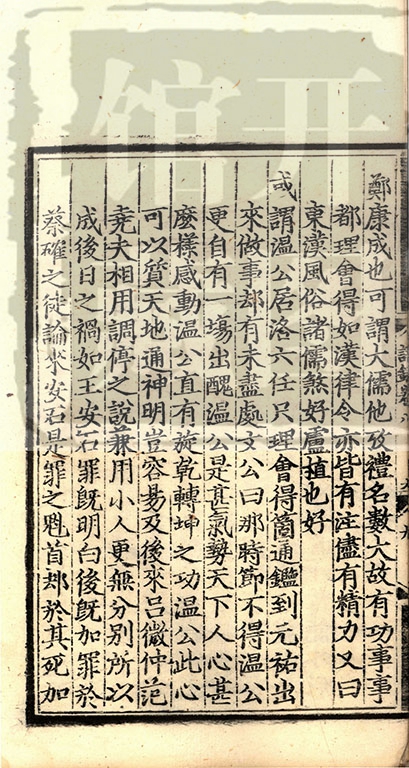 鄭康成也可謂大儒他攷禮名數大故有功事事
都理會得如漢律令亦皆有注儘有精力又曰
東漢風俗諸儒煞好盧植也好
或謂溫公居洛六任只理會得箇通鑑到元祐出
來做事却有未盡處文公曰那時節不得溫公
更自有一塲出醜溫公是甚氣勢天下人心甚
麽樣感動溫公直有旋乾轉坤之功溫公此心
可以質天地通神明豈容易及後來呂微仲范
堯夫相用調停之說兼用小人更無分別所以
成後日之禍如王安石罪旣明白後旣加罪於
蔡確之徒論來安石是罪之魁首却於其死加
开
馆